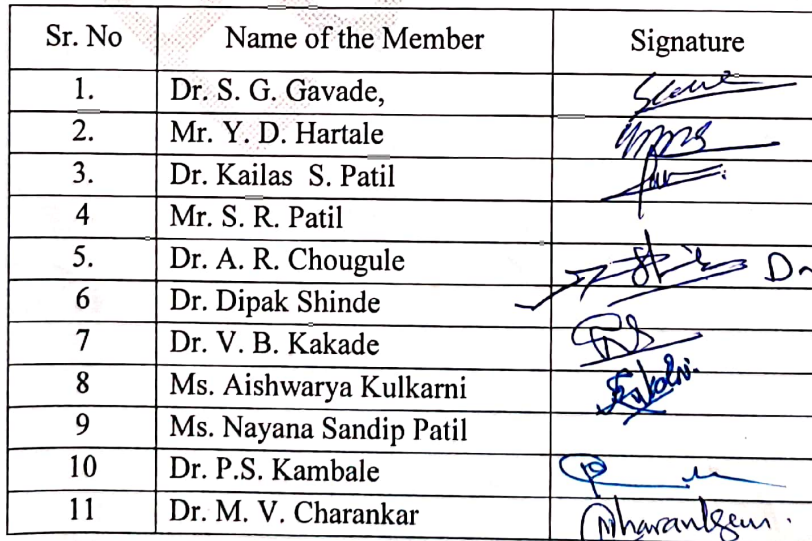 Sr. No Name of the Member Signature
1. Dr. S. G. Gavade,
2. Mr. Y. D. Hartale
3. Dr. Kailas S. Patil
4 Mr. S. R. Patil
5. Dr. A. R. Chougule
6 Dr. Dipak Shinde
7 Dr. V. B. Kakade
8 Ms. Aishwarya Kulkarni
9 Ms. Nayana Sandip Patil
10 Dr. P.S. Kambale
11 Dr. M. V. Charankar